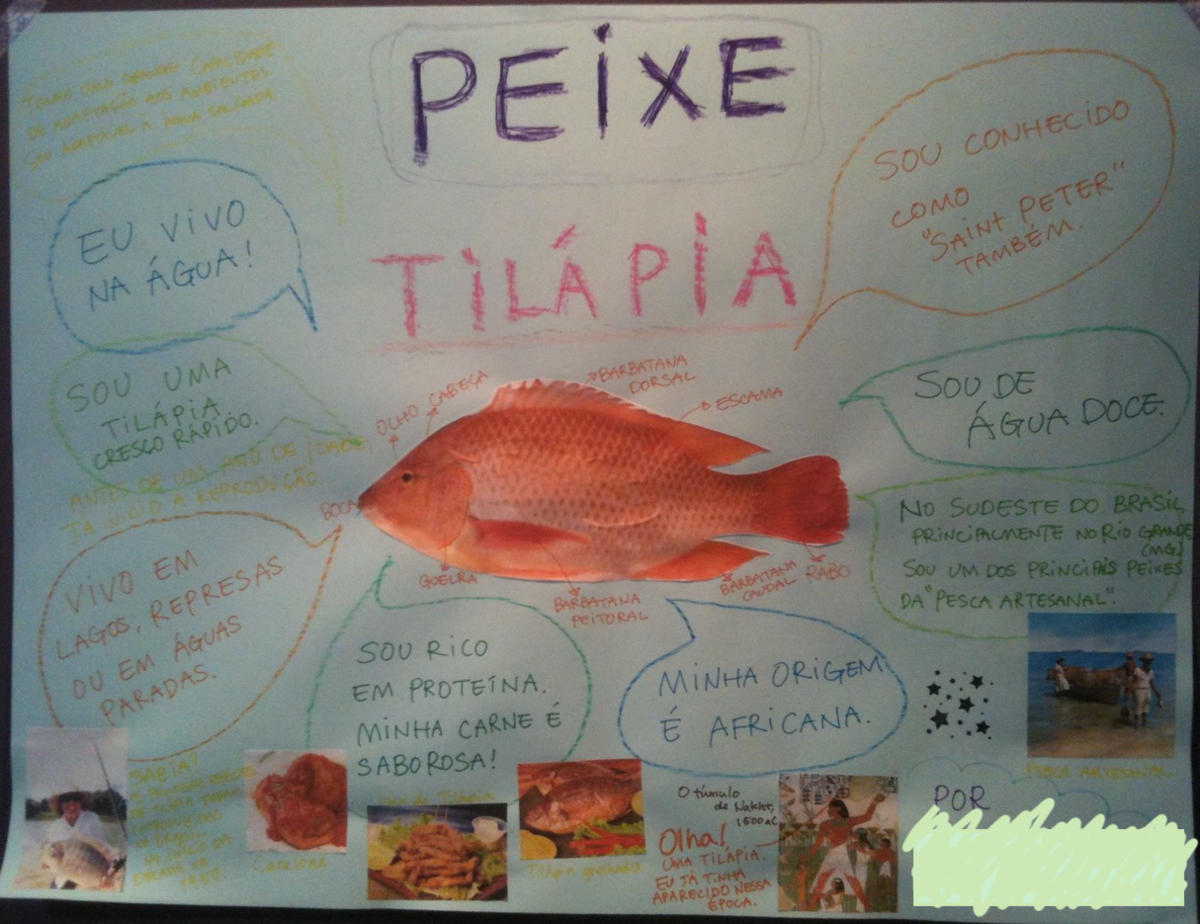 PEIXE
TILÁPIA
TENHO UMA GRANDE CAPACIDADE
DE ADAPTAÇÃO AOS AMBIENTES
SOU ADAPTÁVEL A ÁGUA SALGADA
EU VIVO
NA ÁGUA!
SOU CONHECIDO
COMO
"SAINT PETER"
TAMBÉM.
SOU UMA
TILÁPIA
CRESÇO RÁPIDO.
ANTES DE UM ANO DE IDADE,
JÁ INICIO A REPRODUÇÃO.
OLHO
CABEÇA
BARBATANA
DORSAL
ESCAMA
BOCA
GUELRA
BARBATANA
PEITORAL
BARBATANA
CAUDAL
RABO
SOU DE
ÁGUA DOCE.
NO SUDESTE DO BRASIL,
PRINCIPALMENTE NO RIO GRANDE
(MG)
SOU UM DOS PRINCIPAIS PEIXES
DA "PESCA ARTESANAL".
VIVO EM
LAGOS, REPRESAS
OU EM ÁGUAS
PARADAS.
SOU RICO
EM PROTEÍNA.
MINHA CARNE É
SABOROSA!
MINHA ORIGEM
É AFRICANA.
PESCA ARTESANAL
SABIA?
DE TILÁPIA FORAM
INTRODUZIDAS
NO BRASIL
NO INÍCIO DA
DÉCADA DE
1950.
de Tilápia
Tilápia grelhada
O túmulo
de
1500 a.C.
Olha!
UMA TILÁPIA.
EU JÁ TINHA
APARECIDO NESSA
ÉPOCA.
POR